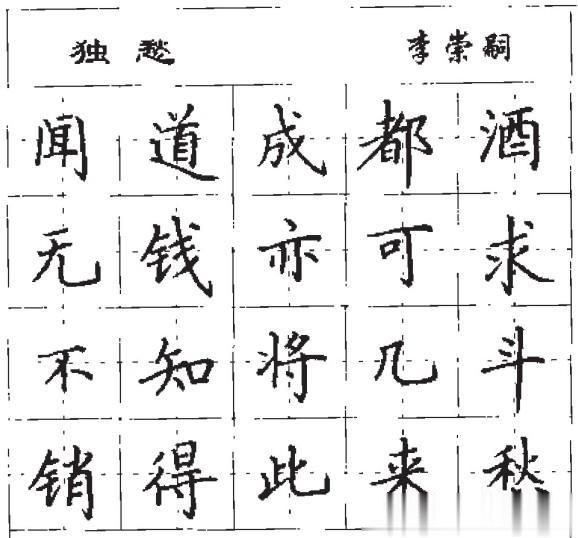 独愁 李崇嗣
闻道成都酒
无钱亦可求
不知将几斗
销得此来秋